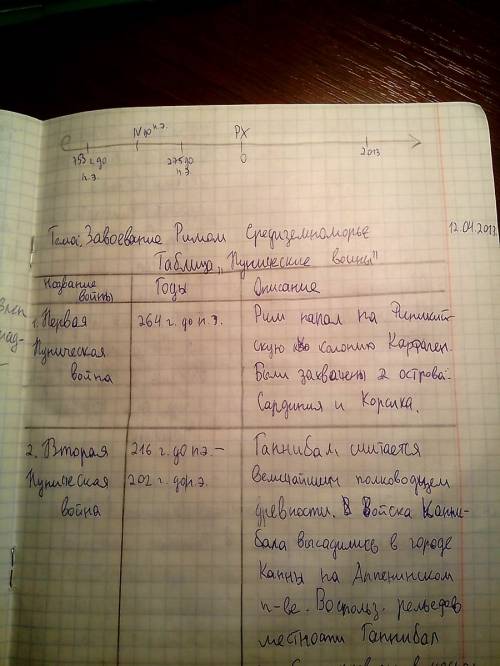 IV до н.э. РХ
753 г до 275 до 0 2013
н.э. н.э.
12.04.2013
Тема: Завоевание Римом Средиземноморье
Таблица „Пунические войны"
Название Годы Описание
войны
1. Первая 264 г. до н.э. Рим напал на Финикий-
Пуническая скую колонию Карфаген.
война Были захвачены 2 острова:
Сардиния и Корсика.
2. Вторая 216 г. до н.э – Ганнибал считается
Пуническая 202 г. до н.э. величайшим полководцем
война древности. Войска Ганни-
бала высадились в городе
Канны на Аппенинском
п-ве. Воспольз. рельефом
местности Ганнибал